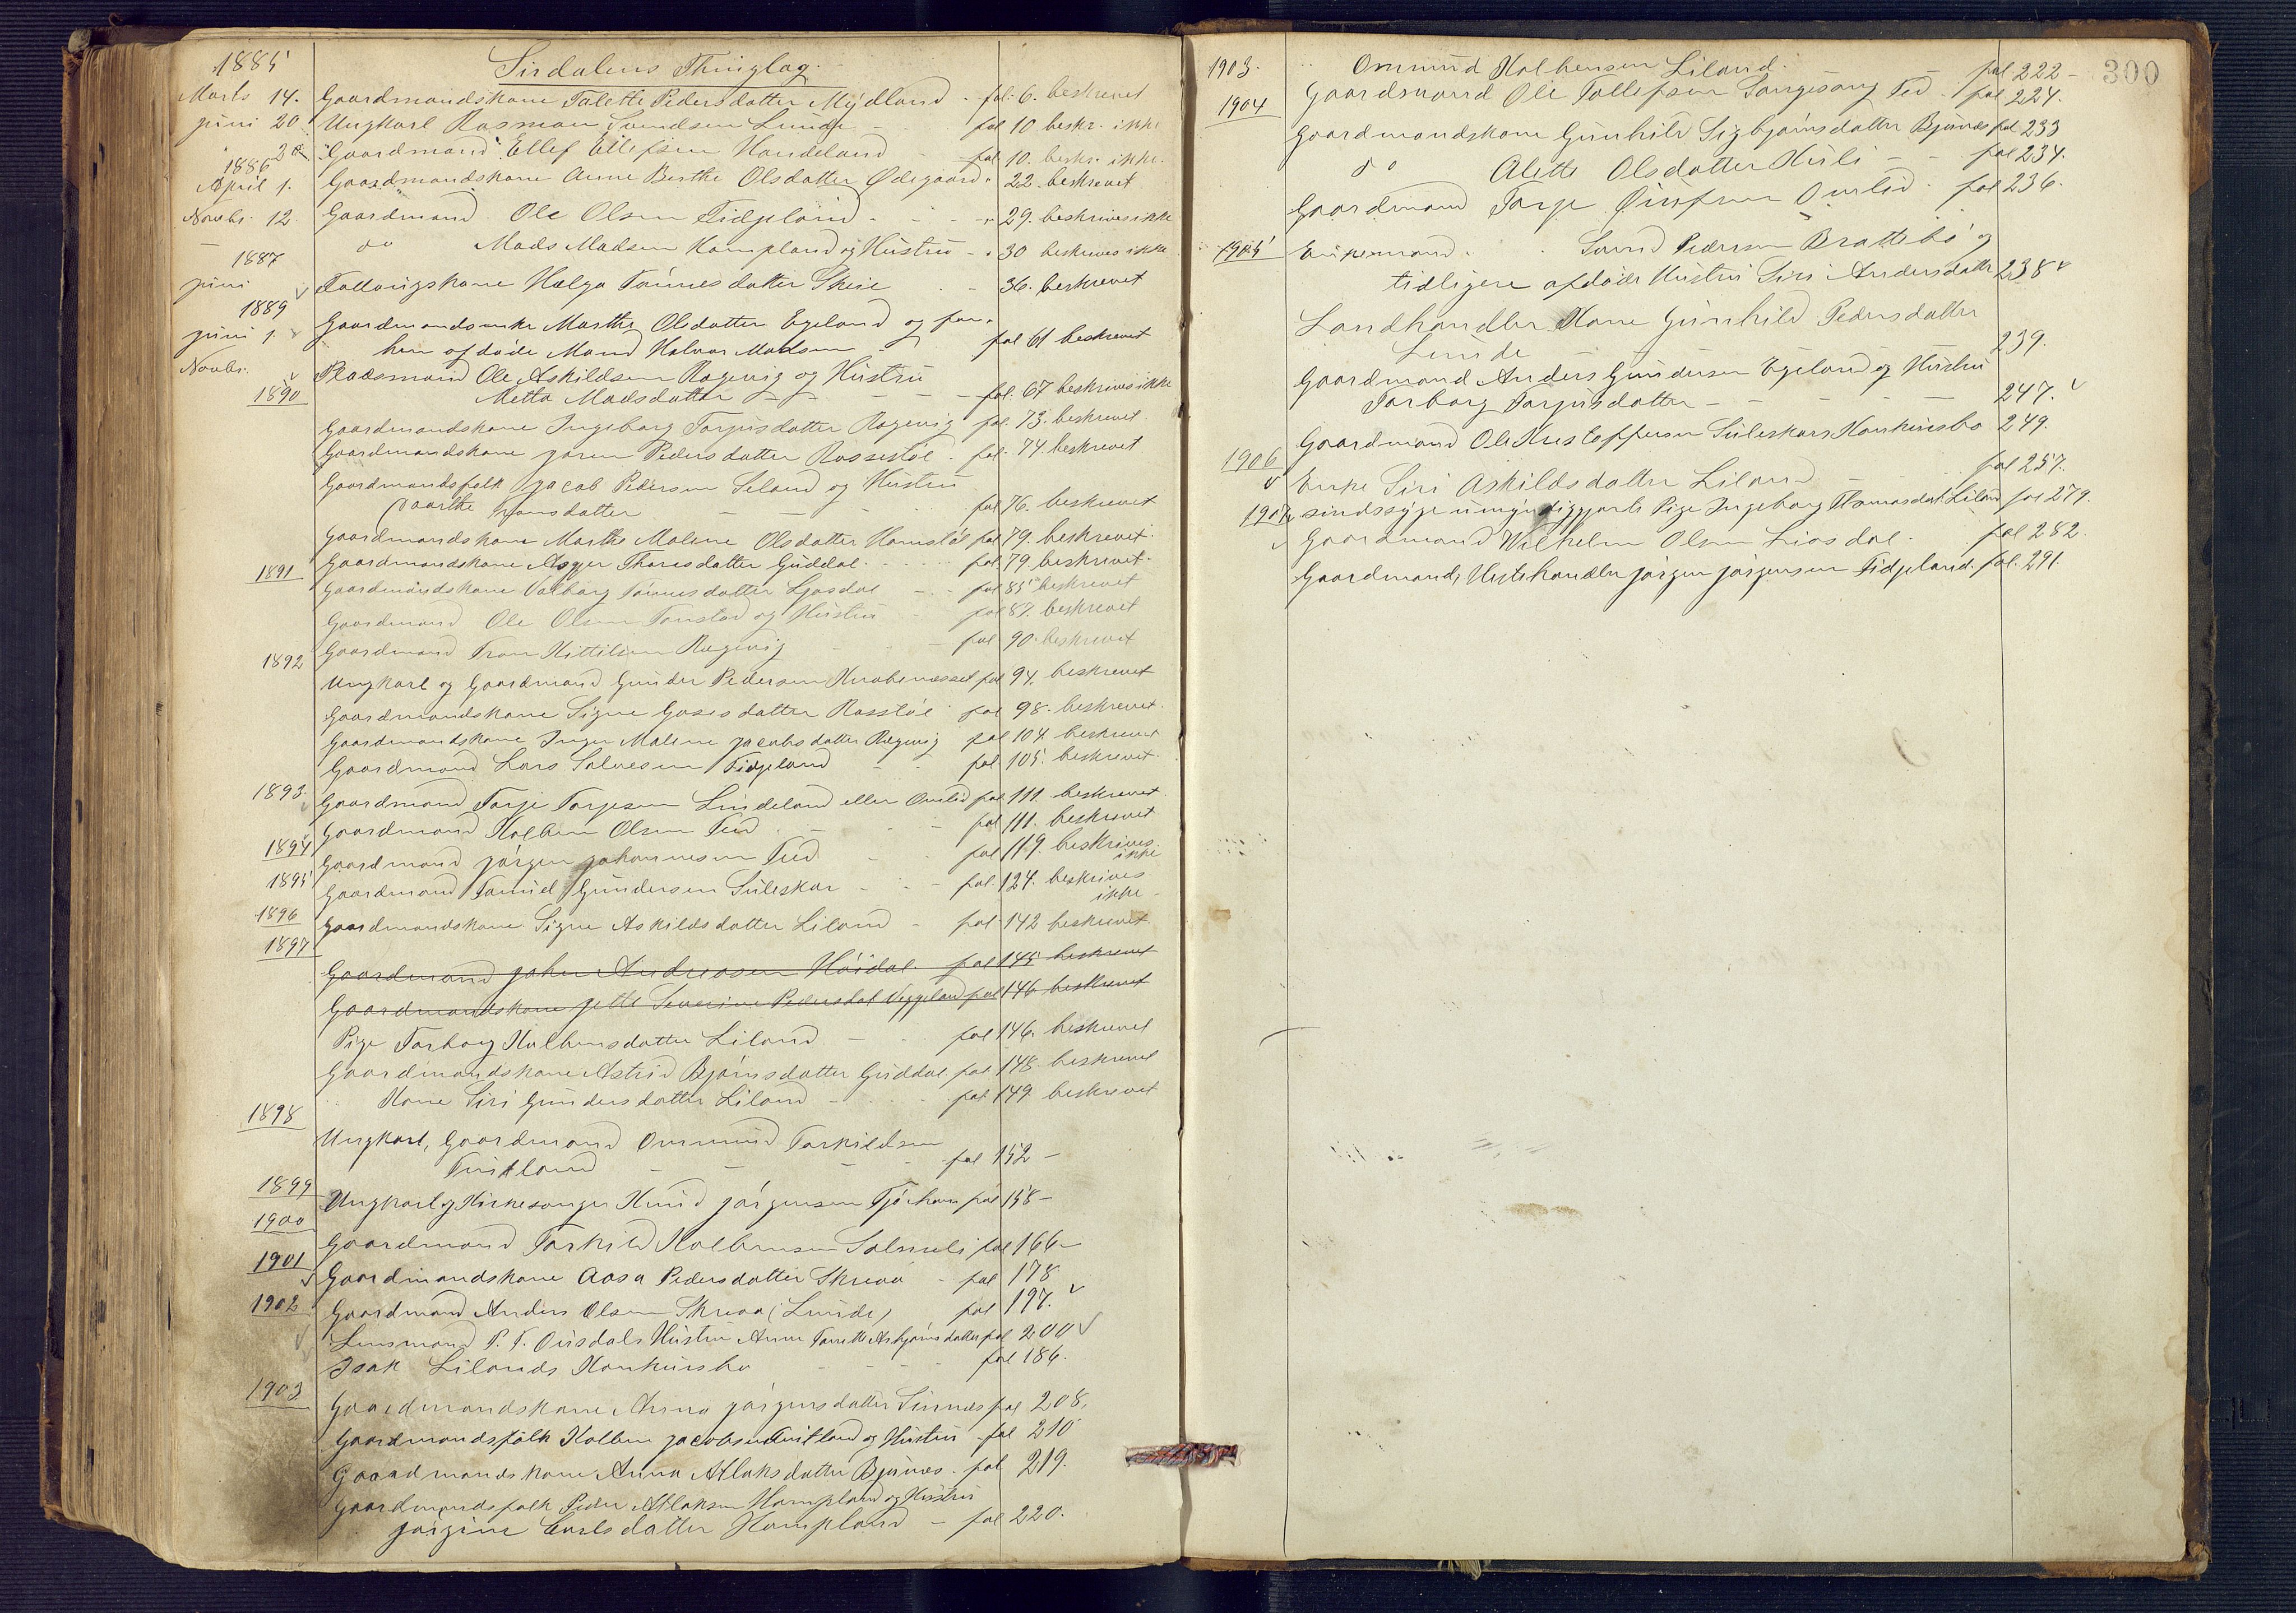 1885 Sirdalens Thinglag.
Marts 14. Gaardmandskone Talette Pedersdatter Mydland - fol. 6. beskrevet
Juni 20. Ungkarl Rasmus Svendsen Lunde fol 10 beskr. ikke
" Gaardmand Ellef Ellefsen Haadeland - fol. 10. beskr. ikke.
1886
April 1. Gaardmandskone Anne Berthe Olsdatter Ødegaard " 22 - beskrevet
Novbr. 12 Gaardmand Ole Olsen Fidjeland - - - " 29. beskrives ikke
do Mads Madsen Kampland og Hustru - " 30 beskrives ikke
1887
Juni Hælga Tønnesdatter - 36. beskrevet
1889
Juni 1. Gaardmandsenke Marthe Olsdatter Egeland og for-
hen afdøde Mand Halvor Madsen fol 61 beskrevet
Novbr. Pladsmand Ole Askildsen Ragevig og Hustru
1890 Mette Madsdatter - - - fol. 67 beskrives ikke
Gaardmandskone Ingeborg Tarjusdatter Ragevig fol. 73. beskrevet
Gaardmandskone Joren Pedersdatter Rossestøl. fol. 74. beskrevet
Gaardmandsfolk Jacob Pedersen Seland og Hustru
Hansdatter - - fol 76. beskrevet
Gaardmandskone Marthe Malene Olsdatter Hamstøl fol 79. beskrevet.
Gaardmandskone Asgjer Thoresdatter Guddal. - - - fol. 79 beskrevet.
1891
Gaardmandskone Valborg Tønnesdatter Ljosdal - - fol 85 beskrevet
Gaardmand Ole Olsen Tonstad og Hustru - fol 87. beskrevet
Gaardmand Tron Kittilsen Ragevig - - - fol 90. beskrevet
1892
Ungkarl og Gaardmand Gunder Pedersen Knabenæsset fol 94. beskrevet
Gaardmandskone Signe Gosesdatter Rosstøl fol 98. beskrevet.
Gaardmandskone Inger Malene Jacobsdatter Ragevig fol 104. beskrevet
Gaardmand Lars Salvesen Fidjeland - - fol. 105. beskrevet.
1893. Gaardmand Tarje Tarjesen Lindeland eller Omlid fol. 111. beskrevet
Gaardmand Kolben Olsen Tveid - - - fol. 111. beskrevet
1894
Gaardmand Jørgen Johannesen Tveid. - fol 119. beskrives
ikke
1895
Gaardmand Tomid Gundersen Suleskar - - - fol. 124. beskrives
ikke -
1896 Gaardmandskone Signe Askildsdatter Liland - fol. 142 beskrevet.
1897
Gaardmand John Andreasen Høidal. fol 145 beskrevet
Gaardmandskone Jette Severine Pedersdat Veggeland fol 146 beskrevet
Pige Torborg Kolbensdatter Liland - - fol 146. beskrevet
Gaardmandskone Astrid Bjørnsdatter Guddal fol 148 beskrevet
" Kone Siri Gundersdatter Liland - - fol 149 beskrevet
1898
Ungkarl, Gaardmand Ommund Torkildsen
Tveitland - - - fol 152 -
1899 Ungkarl og Kirkesanger Knud Jørgensen Tjørhom fol 158 -
1900
Gaardmand Torkild Kolbensen Solmeli fol 166 -
1901 Gaardmandskone Aasa Pedersdatter Skreaa - fol 178
1902. Gaardmand Anders Olsen Skreaa (Lunde) fol 197.
Lensmand P. T. Ousdals Hustru Anne Tarrette Asbjørnsdatter fol 200
Isak Lilands Konkursbo - - - - fol 186.
1903
Gaardmandskone Anna Jørgensdatter Sinnes fol 208.
Gaardmandsfolk Kolben Jacobsen Tveitland og Hustru fol 210
Gaardmandskone Anna Atlaksdatter Bjunes. fol 219.
Gaardmandsfolk Peder Atlaksen Kampland og Hustru
Jørgine Earlsdatter Kampland - fol 220.
1903. Ommund Kolbensen Liland. fol 222 - 300
1904 Gaardmand Ole Tollefsen Sangesang Tved. fol 224.
Gaardmandskone Gunhild Sigbjørnsdatter Bjunes fol 233
do Alette Olsdatter Kuli - - fol 234.
Gaardmand Tarje Omlid. fol 236.
1905 Enkemand. Svend Pedersen Brattebø og
tidligere afdøde Hustru Siri Andersdatter 238
Landhandler Kone Gunhild Pedersdatter
Lunde 239.
Gaardmand Anders Gundersen Egeland og Hustru
Torborg Tarjusdatter - - - - - 247.
Gaardmand Ole Kristoffersen Suleskars Konkursbo 249.
1906
Enke Siri Askildsdatter Liland - fol 257.
1907 sindssyge umyndiggjorte Pige Ingeborg Thomasdat. Liland fol 279.
Gaardmand Wilhelm Olsen Liosdal. fol 282.
Gaardmand, Hestehandler Jørgen Jørgensen Fidjeland. fol. 291.